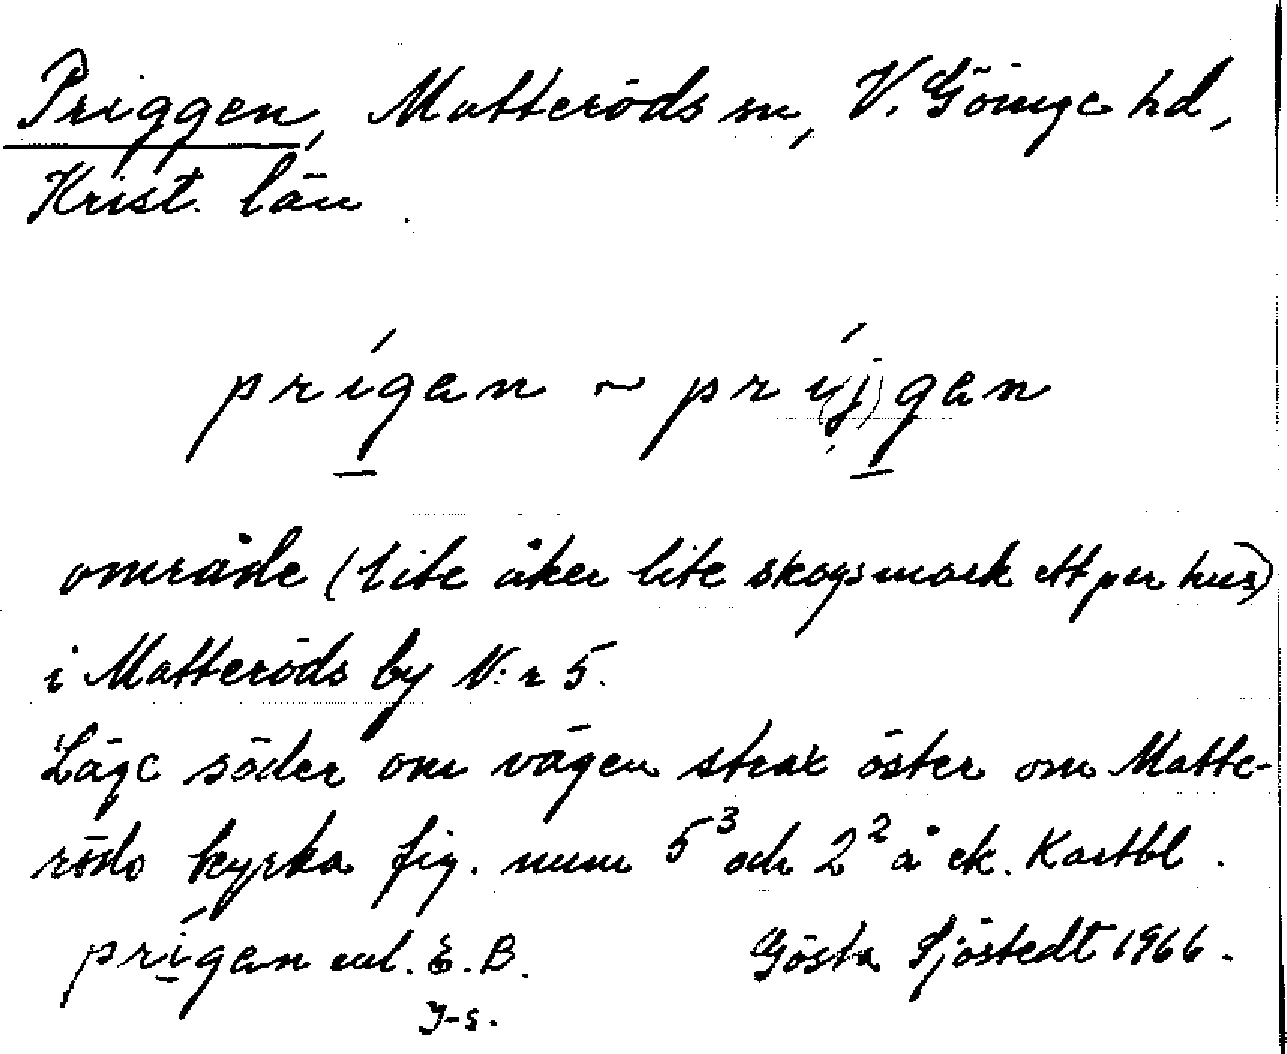 Priggen, Matteröds sn, V. Göinge hd,
Krist. län
prígan ~ prí(j)gan
område (lite åker lite skogsmark ett par hus)
i Matteröds by N:r 5.
Läge söder om vägen strax öster om Matte-
röds kyrka fig. num 5³ och 2² å ek. Kartbl.
prígan enl. E. B.
Gösta Sjöstedt 1966.
J-s.